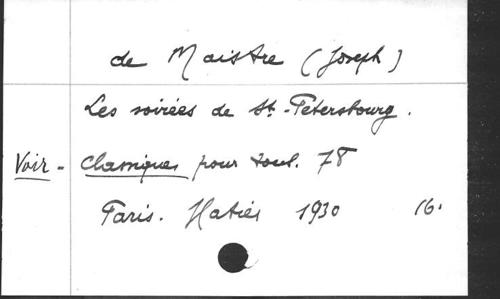 de Maistre (Joseph)
Les soirées de St-Petersbourg.
Voir - Classiques pour tous. 78
Paris. Hatier 1930 16.